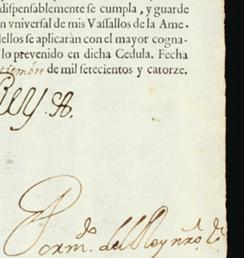 dispensablemente se cumpla, y guarde
en vniversal de mis Vassallos de la Ame-
dellos se aplicaràn con el mayor cogna-
lo prevenido en dicha Cedula. Fecha
tiembre de mil setecientos y catorze.
Rey
del Rey nrõ